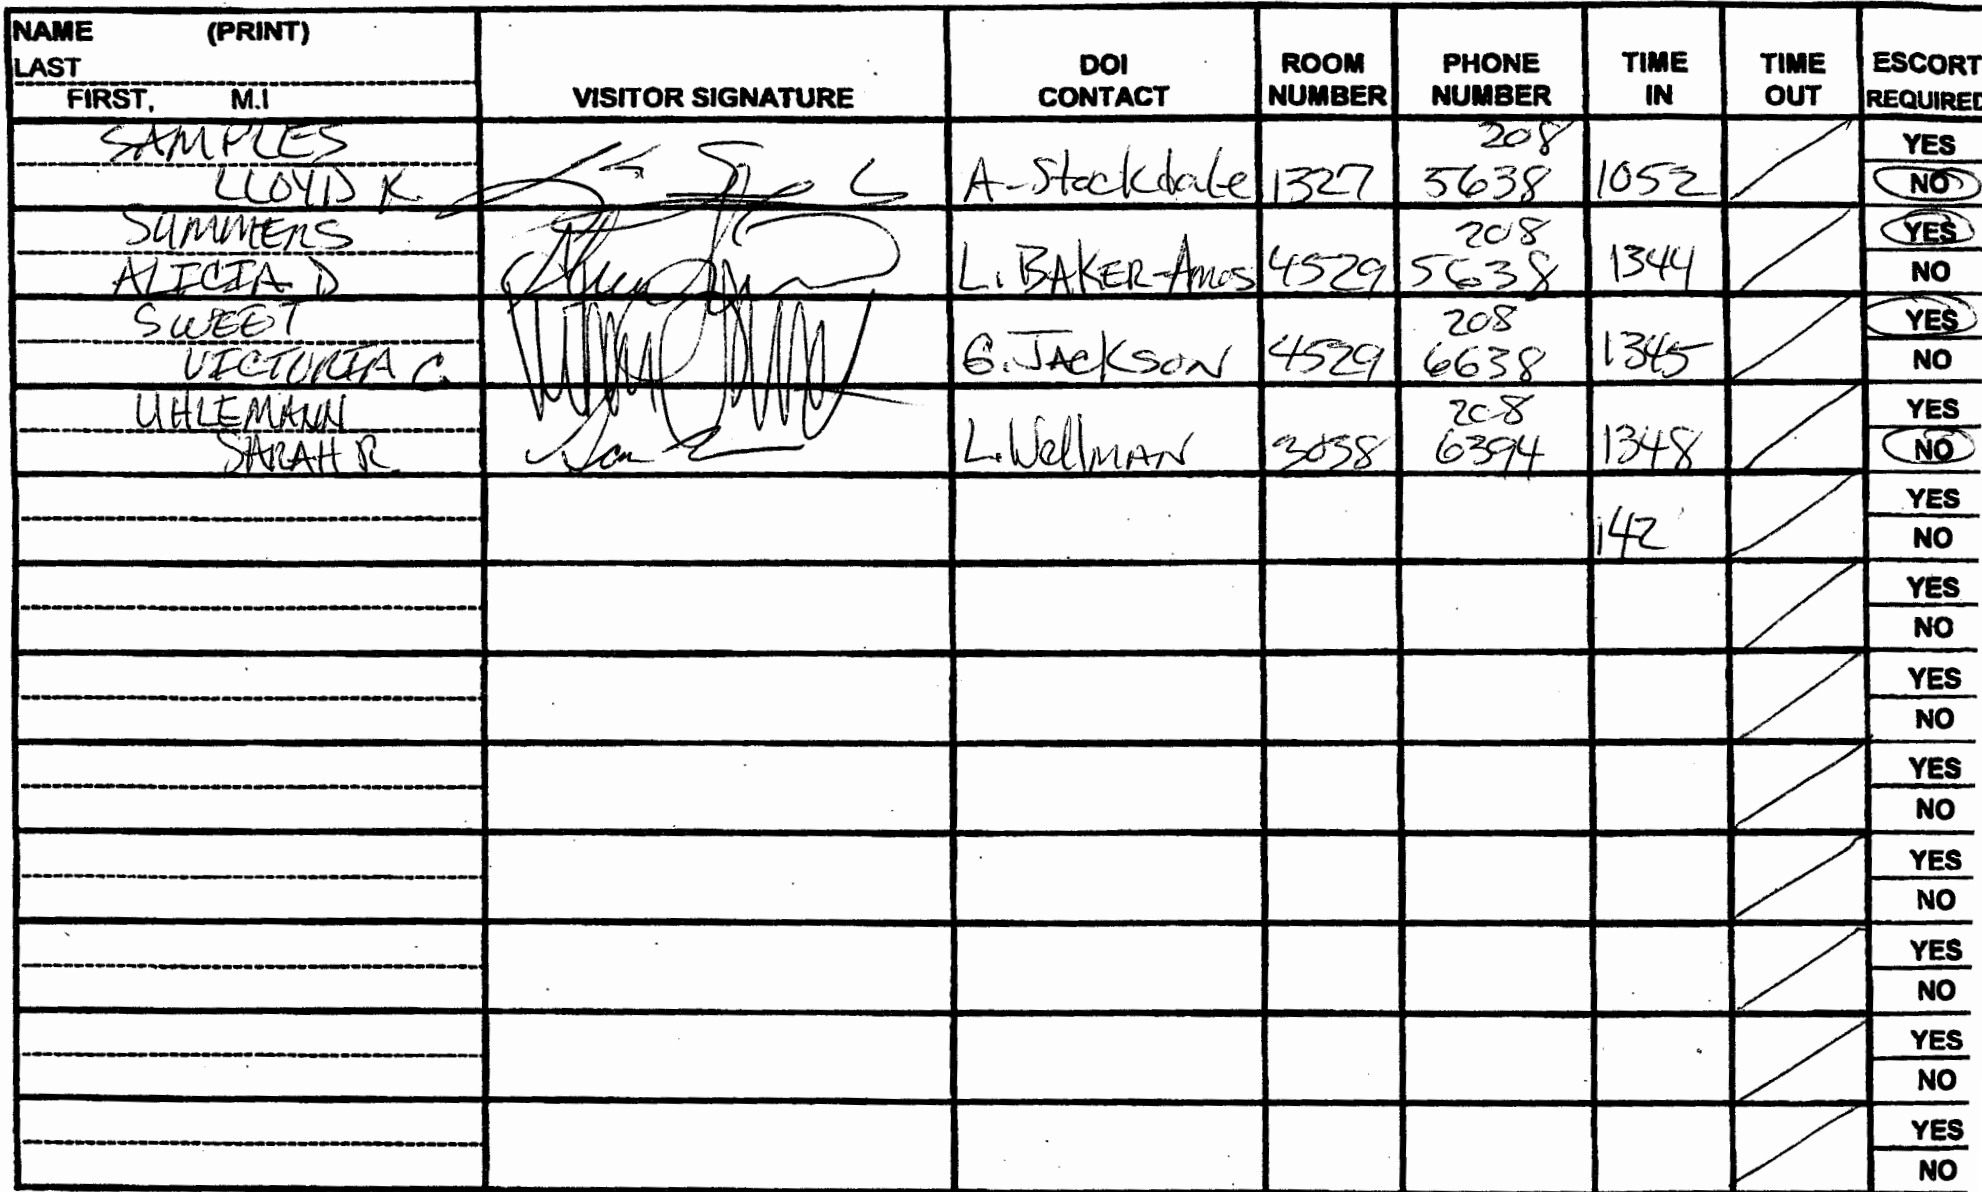 NAME (PRINT)
LAST
FIRST, M.I
VISITOR SIGNATURE
DOI
CONTACT
ROOM
NUMBER
PHONE
NUMBER
TIME
IN
TIME
OUT
ESCORT
REQUIRED
SAMPLES
LLOYD K.
A-Stockdale
1327
208
5638
1052
YES
NO
SUMMERS
ALICIA D
L. BAKER-Amos
4529
208
5638
1344
YES
NO
SWEET
VICTORIA C.
G. JACKSON
4529
208
6638
1345
YES
NO
UHLEMANN
SARAH R.
L. WellMAN
3038
208
6394
1348
YES
NO
142
YES
NO
YES
NO
YES
NO
YES
NO
YES
NO
YES
NO
YES
NO
YES
NO